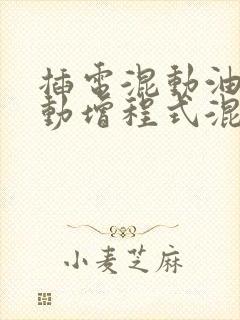 插电混動油
動增程式混
小麦芝麻